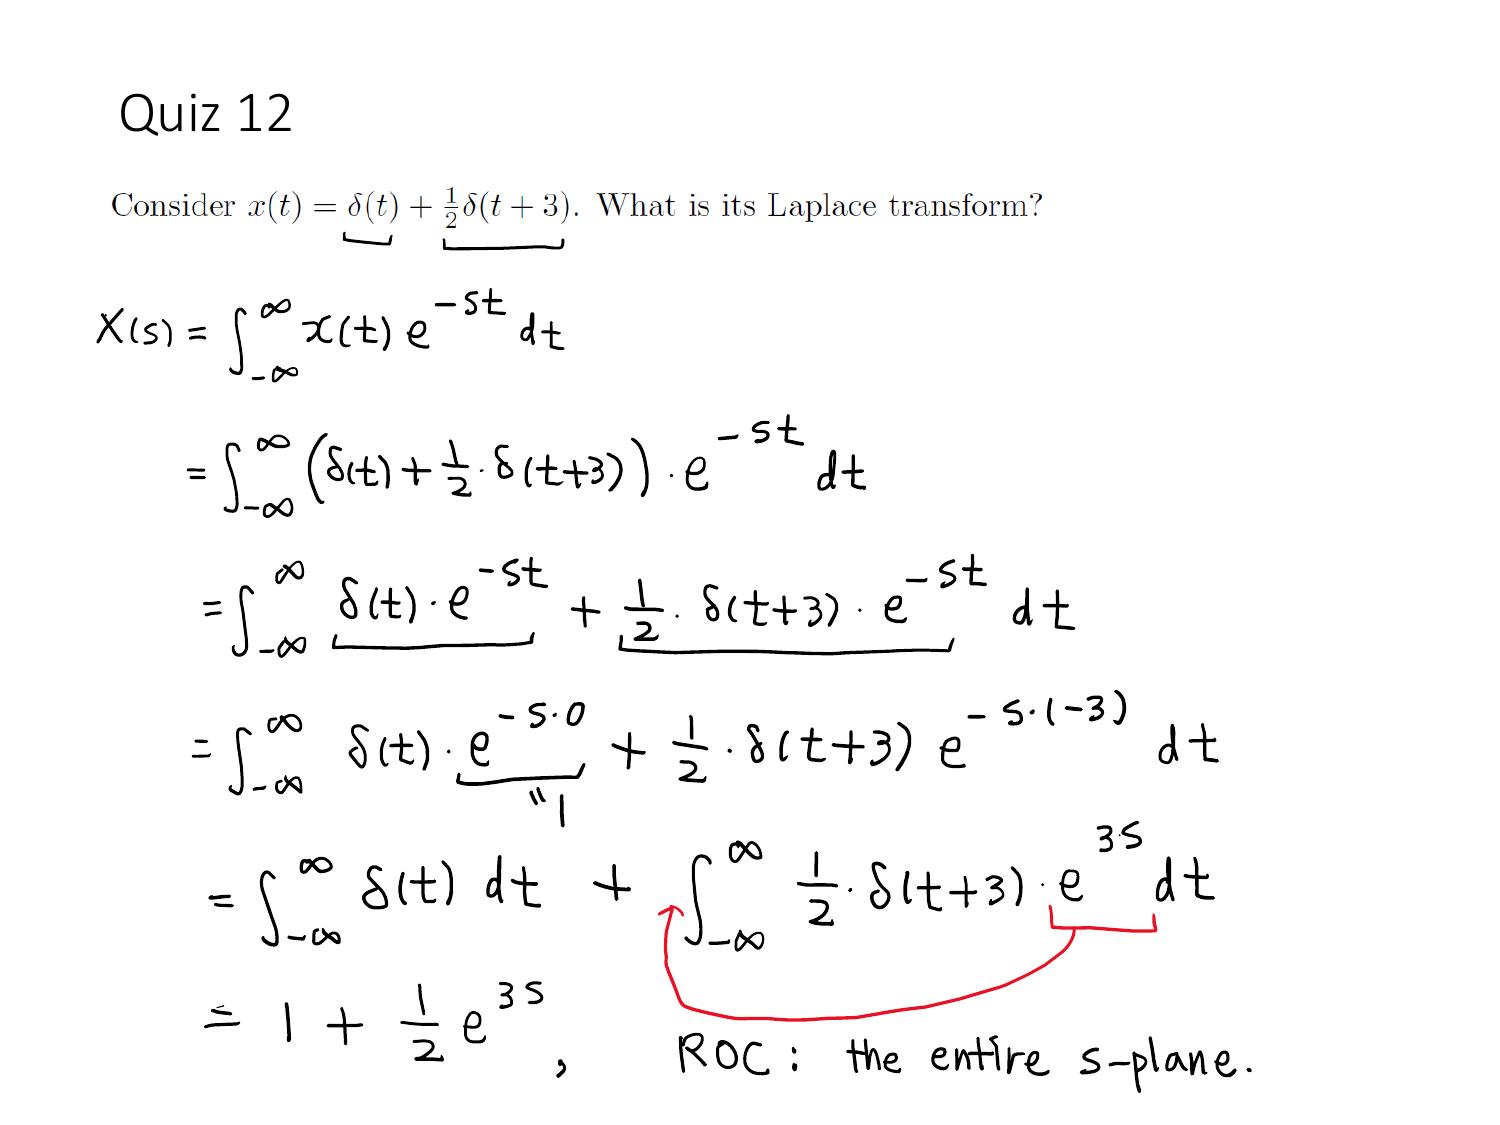 Quiz 12
Consider x(t) = δ(t) + ½δ(t + 3). What is its Laplace transform?
X(s) = ∫_{-∞}^{∞} x(t) e^{-st} dt
= ∫_{-∞}^{∞} (δ(t) + 1/2 · δ(t+3)) · e^{-st} dt
= ∫_{-∞}^{∞} δ(t) · e^{-st} + 1/2 · δ(t+3) · e^{-st} dt
= ∫_{-∞}^{∞} δ(t) · e^{-s·0} + 1/2 · δ(t+3) e^{-s·(-3)} dt
" 1
= ∫_{-∞}^{∞} δ(t) dt + ∫_{-∞}^{∞} 1/2 · δ(t+3) · e^{3s} dt
= 1 + 1/2 e^{3s} , ROC : the entire s-plane.